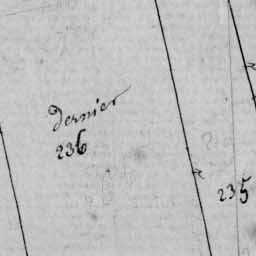 dernier
236
235